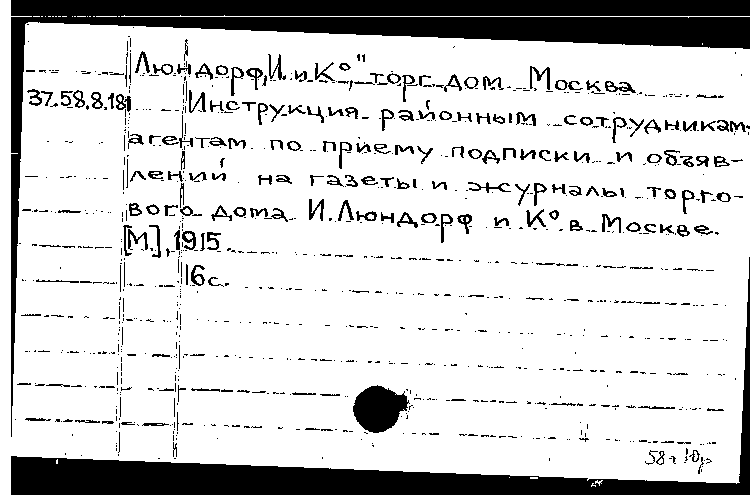 Люндорф, И. и Кº," торг. дом. Москва.
37.58.8.181 Инструкция районным сотрудникам-
агентам по приему подписки и объяв-
лений на газеты и журналы торго-
вого дома И. Люндорф и Кº в Москве.
[М.], 1915.
16с.